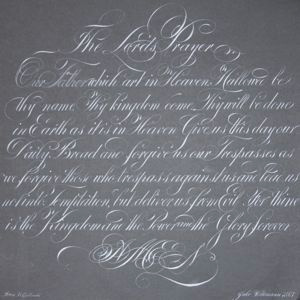 The Lord's Prayer
Our Father which art in Heaven, Hallowed be
thy name Thy kingdom come, Thy will be done
in Earth as it is in Heaven Give us this day our
Daily Bread and forgive us our Trespasses as
we forgive those who trespass against us and lead us
not into Temptation, but deliver us from Evil. For thine
is the Kingdom and the Power and the Glory forever
AMEN